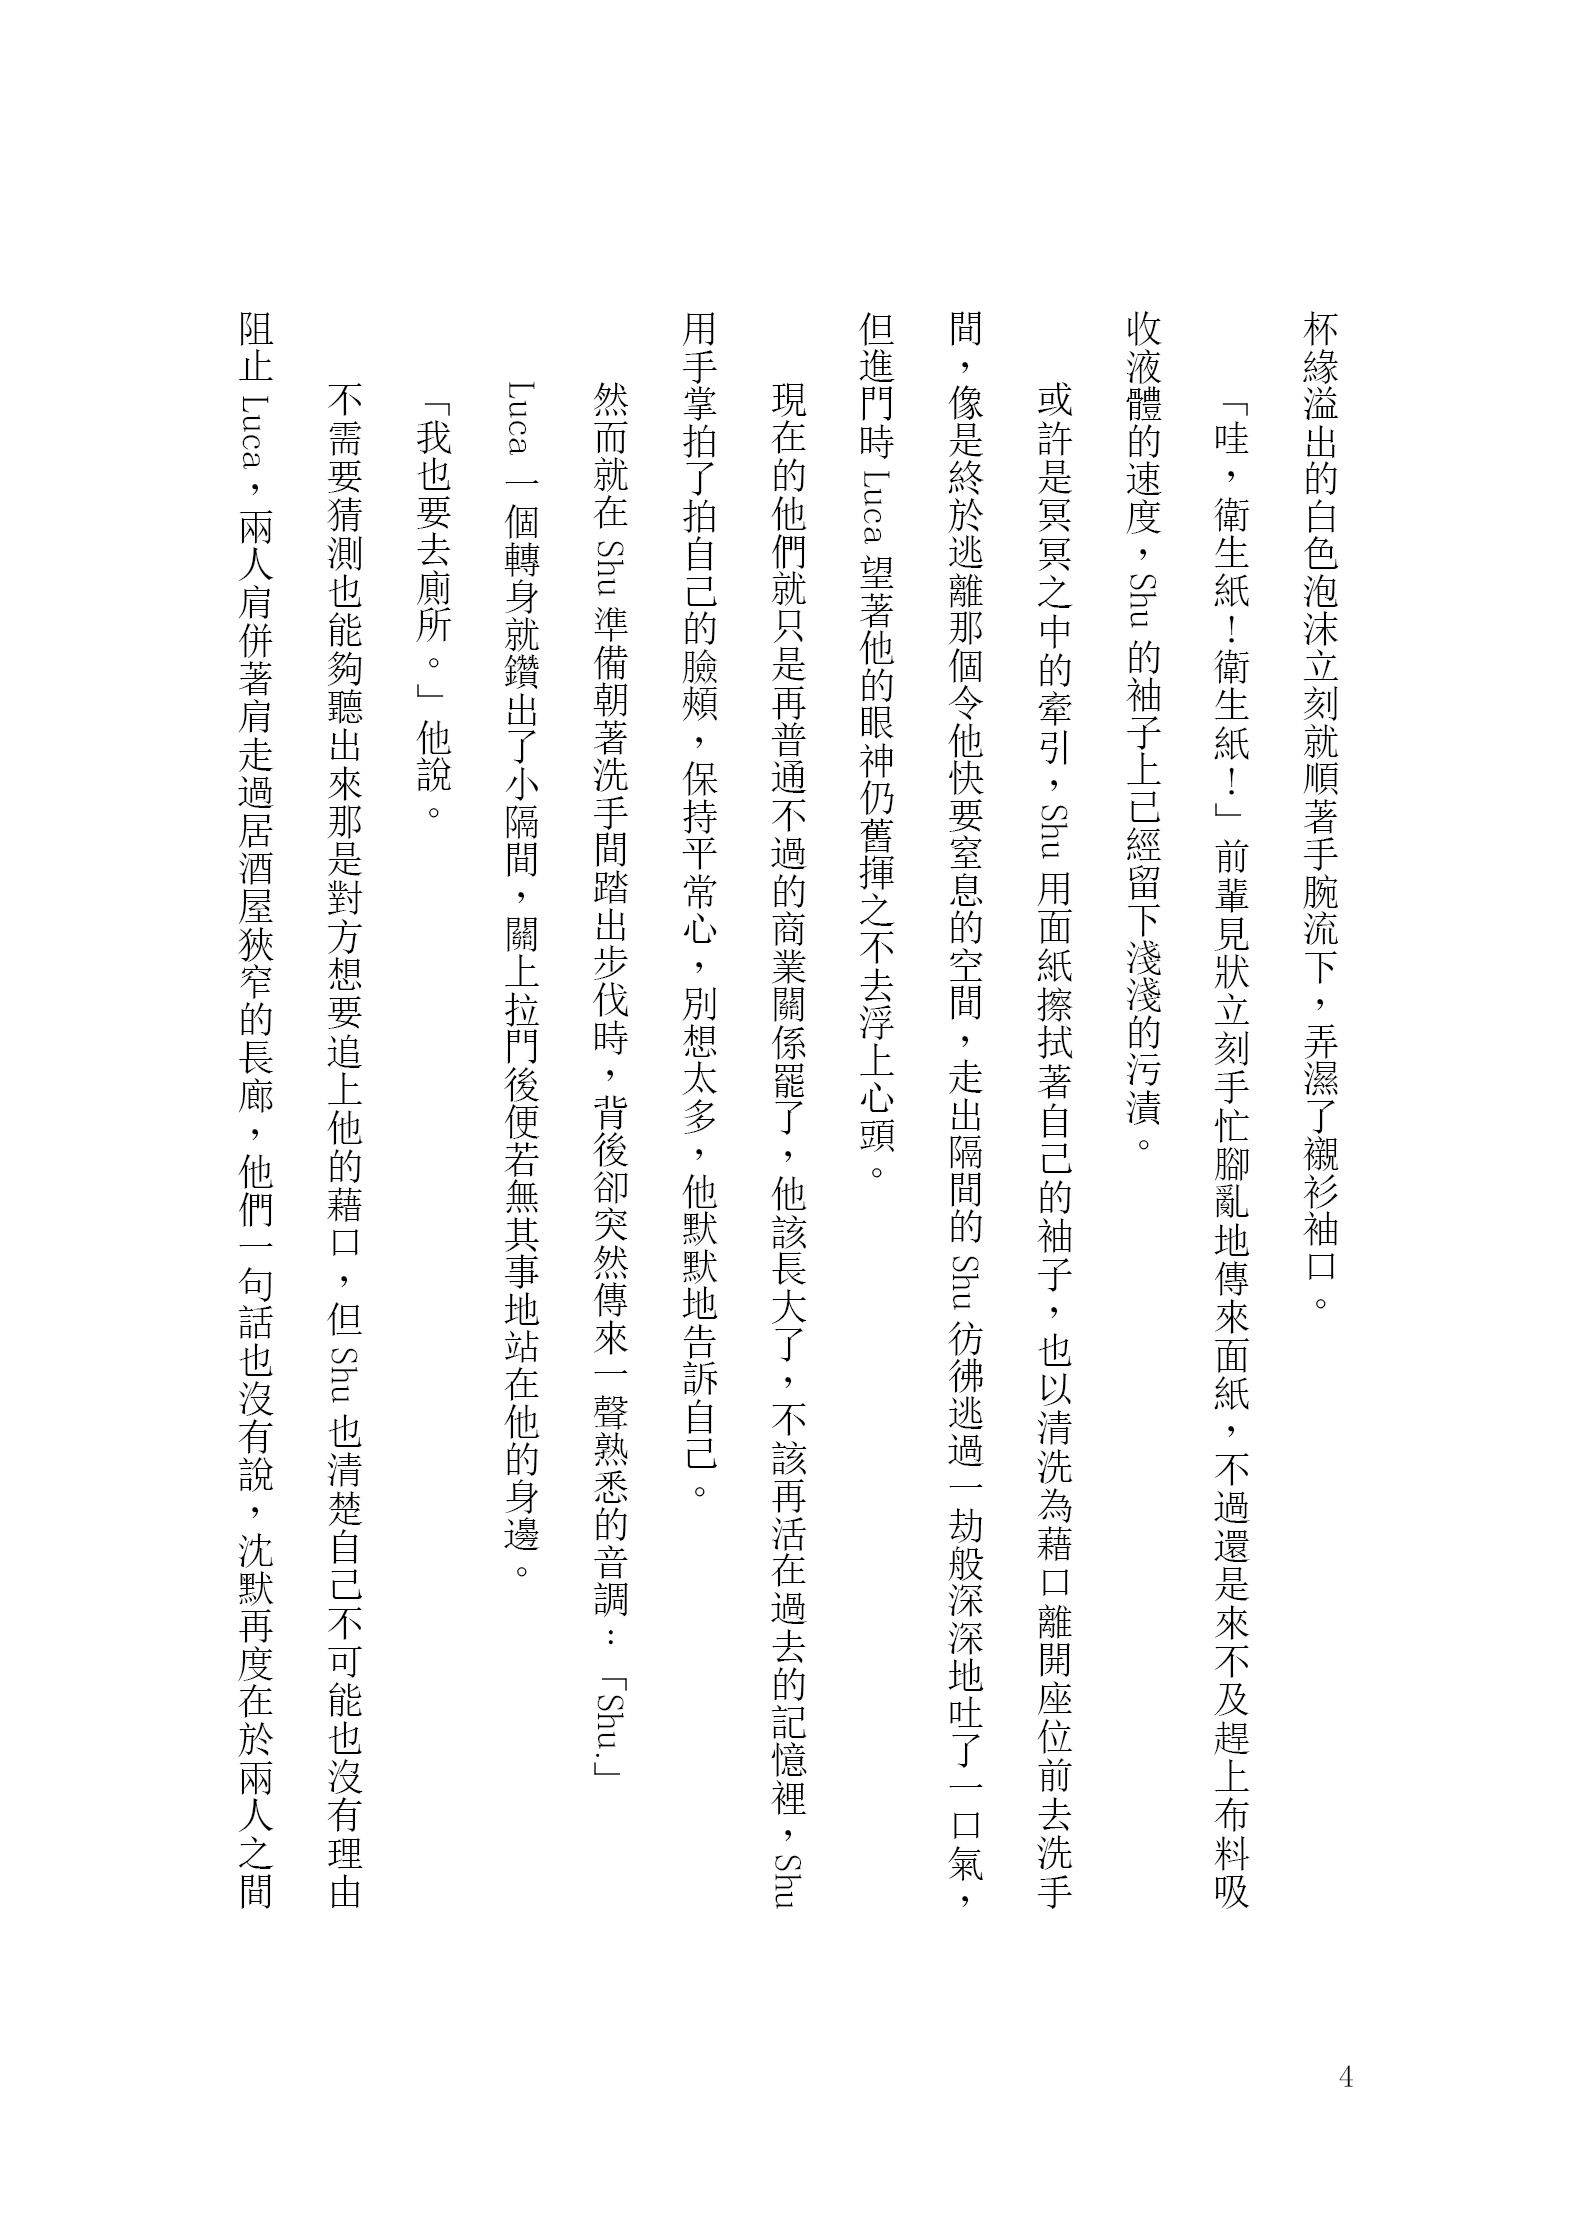 杯緣溢出的白色泡沫立刻就順著手腕流下，弄濕了襯衫袖口。
「哇，衛生紙！衛生紙！」前輩見狀立刻手忙腳亂地傳來面紙，不過還是來不及趕上布料吸
收液體的速度，Shu 的袖子上已經留下淺淺的污漬。
或許是冥冥之中的牽引，Shu 用面紙擦拭著自己的袖子，也以清洗為藉口離開座位前去洗手
間，像是終於逃離那個令他快要窒息的空間，走出隔間的 Shu 彷彿逃過一劫般深深地吐了一口氣，
但進門時 Luca 望著他的眼神仍舊揮之不去浮上心頭。
現在的他們就只是再普通不過的商業關係罷了，他該長大了，不該再活在過去的記憶裡，Shu
用手掌拍了拍自己的臉頰，保持平常心，別想太多，他默默地告訴自己。
然而就在 Shu 準備朝著洗手間踏出步伐時，背後卻突然傳來一聲熟悉的音調：「Shu.」
Luca 一個轉身就鑽出了小隔間，關上拉門後便若無其事地站在他的身邊。
「我也要去廁所。」他說。
不需要猜測也能夠聽出來那是對方想要追上他的藉口，但 Shu 也清楚自己不可能也沒有理由
阻止 Luca，兩人肩併著肩走過居酒屋狹窄的長廊，他們一句話也沒有說，沈默再度在於兩人之間
4